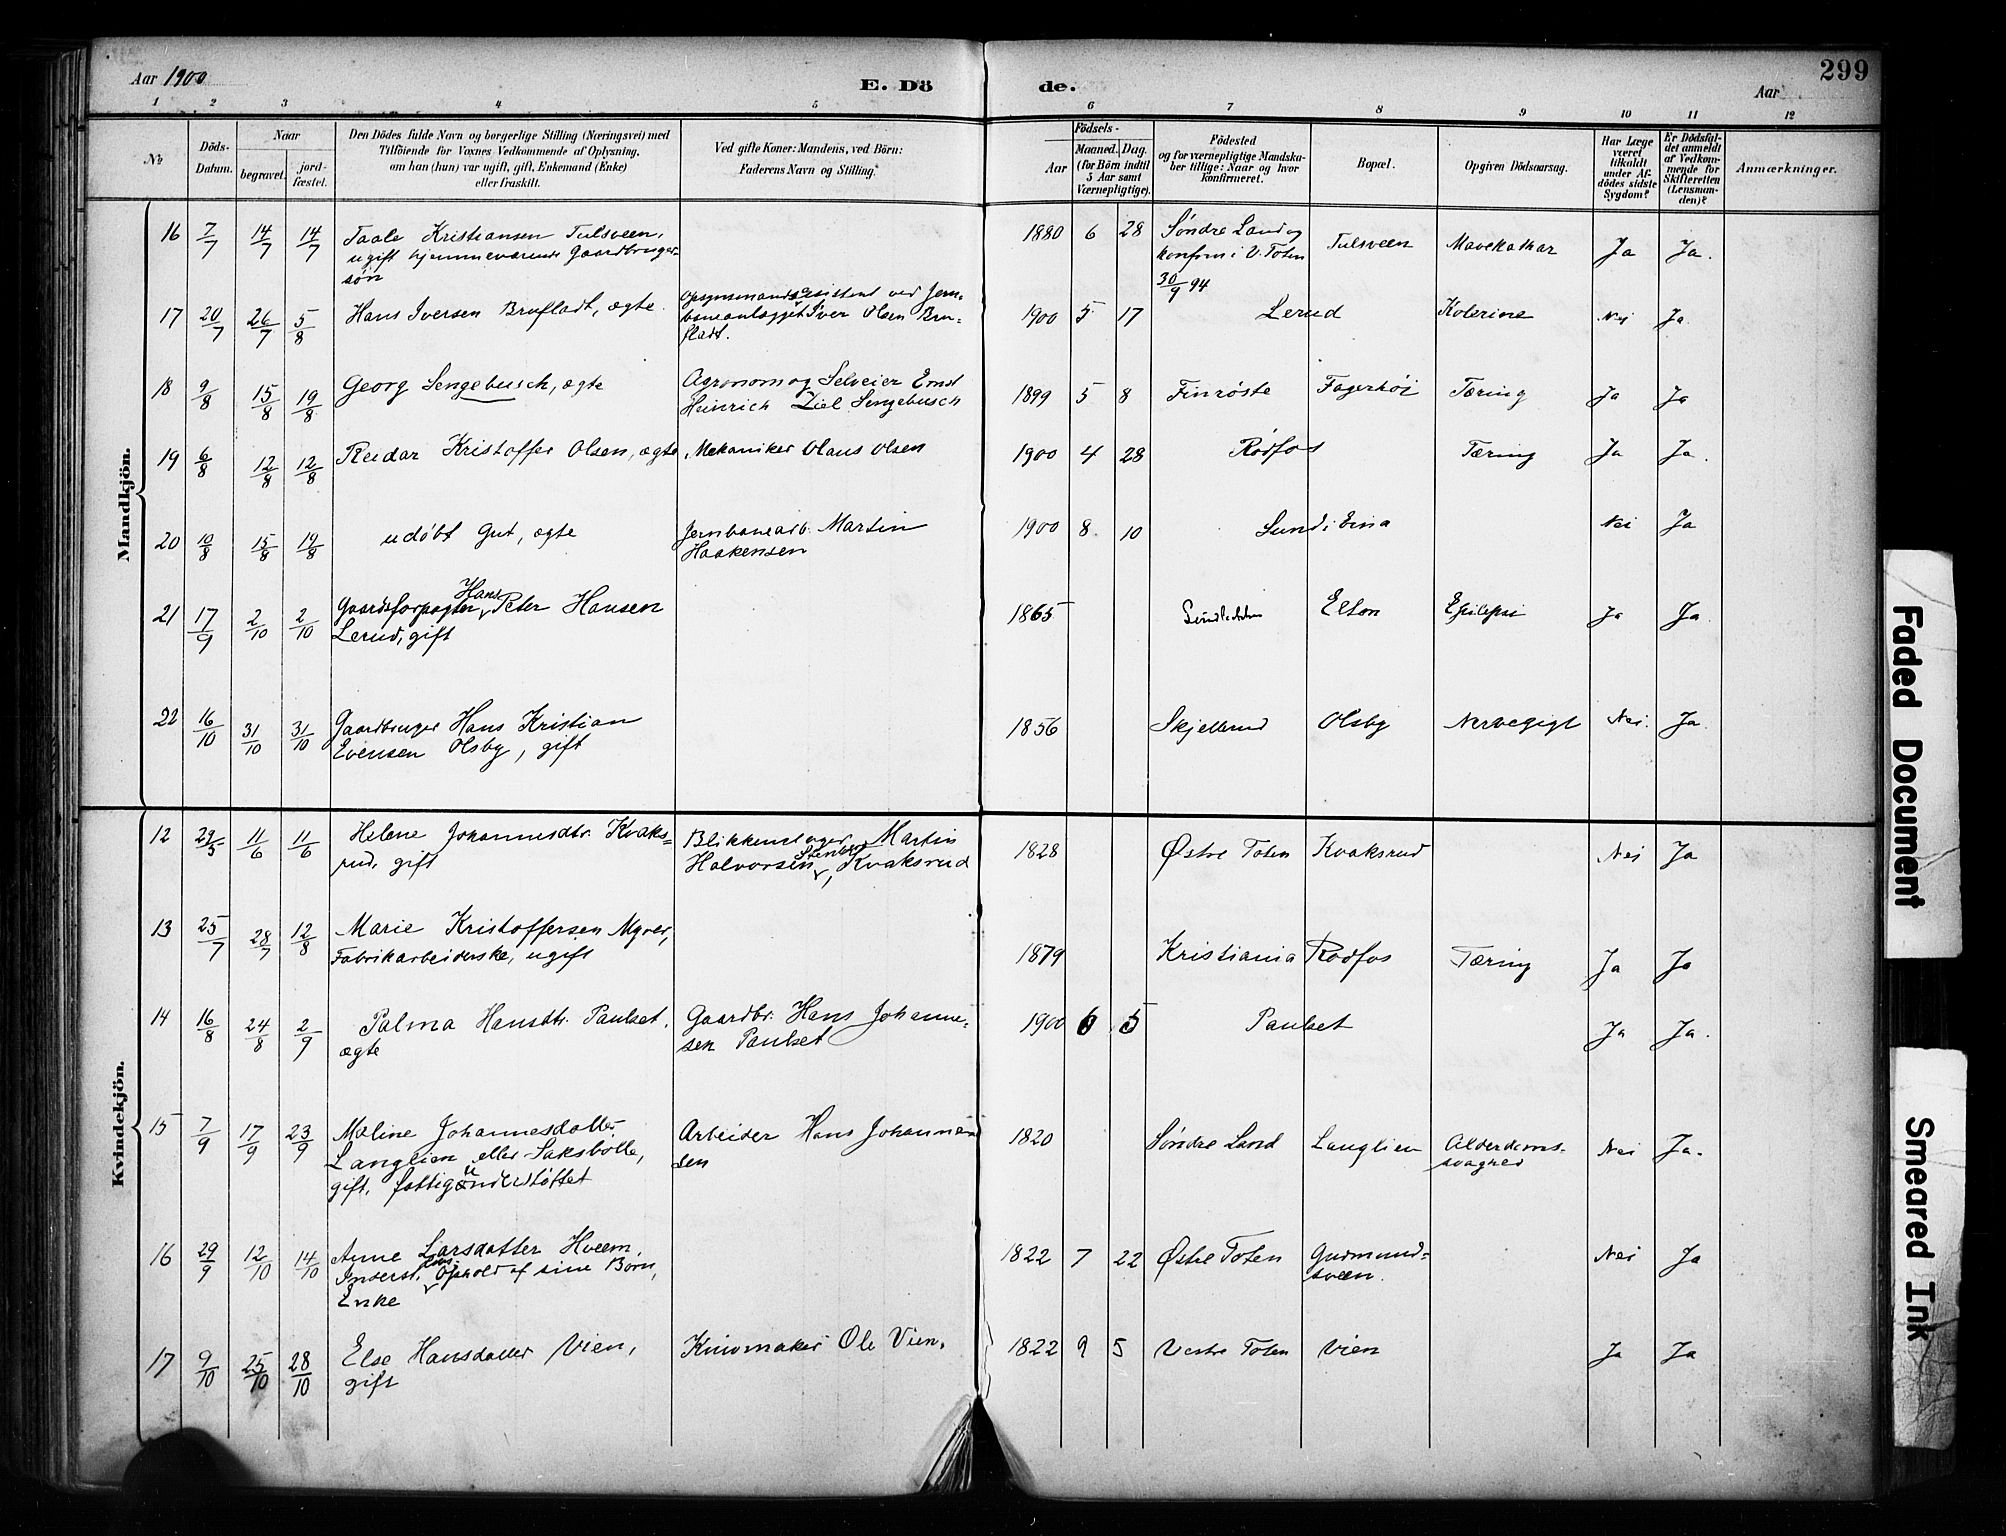 Aar 1900
E. Dö
de.
Aar
299
1 2 3 4 5 6 7 8 9 10 11 12
No
Döds-
Datum.
Naar
begravet.
jord-
fæstet.
Den Dödes fulde Navn og borgerlige Stilling (Næringsvei) med
Tilföiende for Voxnes Vedkommende af Oplysning,
om han (hun) var ugift, gift, Enkemand (Enke)
eller fraskilt.
Ved gifte Koner: Mandens, ved Börn:
Faderens Navn og Stilling.
Födsels-
Aar
Maaned. Dag.
(for Börn indtil
5 Aar samt
Værnepligtige).
Födested
og for værnepligtige Mandska-
ber tillige: Naar og hvor
konfirmeret.
Bopæl.
Opgiven Dödsaarsag.
Har Læge
været
tilkaldt
under Af-
dödes sidste
Sygdom?
Er Dödsfal-
det anmeldt
af Vedkom-
mende for
Skifteretten
(Lensman-
den)?
Anmærkninger.
Mandkjön.
16 7/7 14/7 14/7 Taale Kristiansen Tulsveen, 1880 6 28 Søndre Land og Tulsveen Mavekathar Ja Ja.
ugift hjemmeværende Gaardbruger- konfirm i V. Toten
søn 30/9 94
17 20/7 26/7 5/8 Hans Iversen Brufladt, ægte. Opsynsmandsassistent ved Jern- 1900 5 17 Lerud Kolerine Nei Ja
baneanlægget Iver Olsen Bru-
fladt.
18 9/8 15/8 19/8 Georg Sengebusch, ægte Agronom og Selveier Ernst 1899 5 8 Finrøste Fagerhøi Tæring Ja Ja
Heinrich Ziel Sengebusch
19 6/8 12/8 12/8 Reidar Kristoffer Olsen, ægte Mekaniker Olaus Olsen 1900 4 28 Rødfos Tæring Ja Ja.
20 10/8 15/8 19/8 udøbt Gut, ægte Jernbanearb. Martin 1900 8 10 Sund i Eina Nei Ja
Haakensen
21 17/9 2/10 2/10 Gaardsforpagter Hans Peter Hansen 1865 Elton Epilepsi Ja Ja.
Lerud, gift
22 16/10 31/10 31/10 Gaardbruger Hans Kristian 1856 Skjellerud Olsby Nervegigt Nei. Ja
Evensen Olsby, gift
Kvindekjön.
12 29/5 11/6 11/6 Helene Johannesdtr. Kvaks- Blikkenslager Martin 1828 Østre Toten Kvaksrud Nei Ja
rud, gift Halvorsen Stenberg, Kvaksrud
13 25/7 28/7 12/8 Marie Kristoffersen Myrer, 1879 Kristiania Rødfos Tæring Ja Ja
Fabrikarbeiderske, ugift
14 16/8 24/8 2/9 Palma Hansdtr. Paulset, Gaardbr. Hans Johanne- 1900 6 5 Paulset Ja Ja.
ægte sen Paulset
15 7/9 17/9 23/9 Maline Johannesdatter Arbeider Hans Johanne- 1820 Søndre Land Langlien Alderdoms- Nei Ja.
Langlien eller Saksbølle, sen svaghed
gift, fattigunderstøttet
16 29/9 12/10 14/10 Anne Larsdatter Hveem, 1822 7 22 Østre Toten Gudmund- Nei Ja
Inderst, Ophold af sine Børn, sveen.
Enke
17 9/10 25/10 28/10 Else Hansdatter Vien, Knivmaker Ole Vien. 1822 9 5 Vestre Toten Vien Ja Ja
gift
Faded Document
Smeared Ink